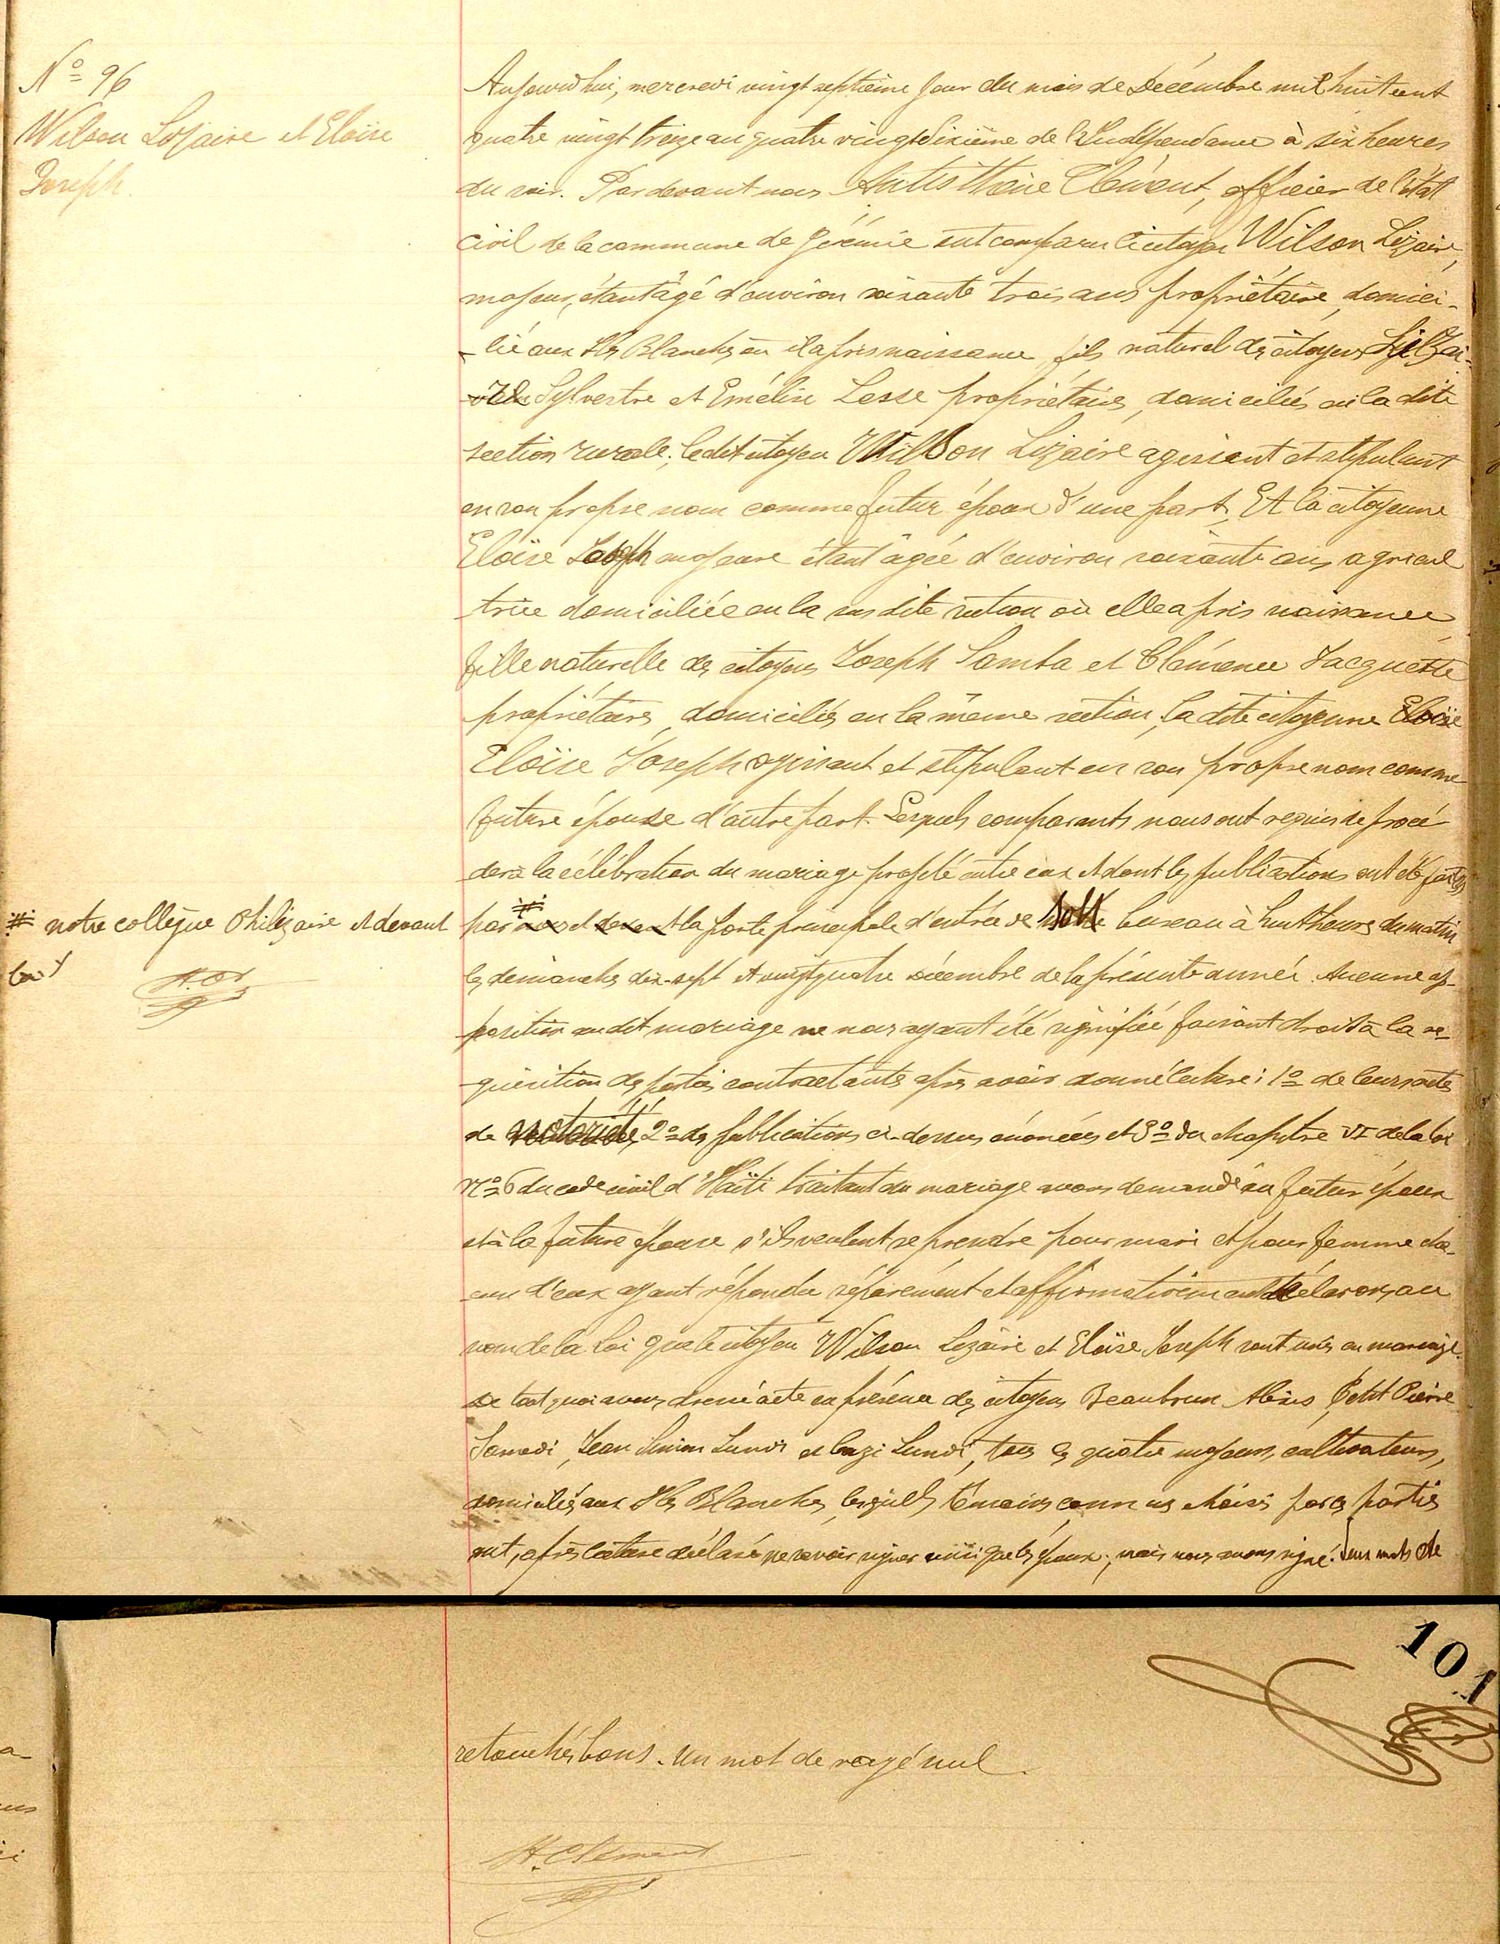 N° 96
Wilson Lozaire et Eloïse
Joseph.
Aujourd'hui, mercredi vingt septième jour du mois de Décembre mil huit cent
quatre vingt treize au quatre vingt dixième de l'Indépendance à six heures
du soir. Par devant nous Antisthène Clément, officier de l'état
civil de la commune de Jérémie est comparu le citoyen Wilson Lezaire,
majeur, étant âgé d'environ soixante trois ans propriétaire, domici-
-lié aux Iles Blanches où il a pris naissance, fils naturel des citoyens
Sylvestre et Emélise Lesse propriétaires, domiciliés en la dite
section rurale; le dit citoyen Wilson Lezaire agissant et stipulant
en son propre nom comme futur époux d'une part, Et la citoyenne
Eloïse Joseph majeure étant âgée d'environ soixante ans, agricul
trice domiciliée en la susdite section où elle a pris naissance,
fille naturelle des citoyens Joseph Samba et Clémence Jacquette
propriétaires, domiciliés en la même section, la dite citoyenne Eloïse
Eloïse Joseph agissant et stipulant en son propre nom comme
future épouse d'autre part. Lesquels comparants nous ont requis de procé
der à la célébration du mariage projeté entre eux et dont les publications ont été faites
# notre collègue Philizaire et devant
la
par # nous et devant la porte principale d'entrée de notre bureau à huit heures du matin
les dimanches dix-sept et vingt quatre décembre de la présente année. Aucune op-
position au dit mariage ne nous ayant été signifiée faisant droit à la ré-
quisition des parties contractantes après avoir donné lecture: 1° de leurs actes
de notoriété, 2° des publications ci-dessus énoncées et 3° du chapitre VI de la loi
N° 6 du code civil d'Haïti traitant du mariage avons demandé au futur époux
et à la future épouse s'ils veulent se prendre pour mari et pour femme cha-
cun d'eux ayant répondu séparément et affirmativement déclarons au
nom de la Loi que le citoyen Wilson Lezaire et Eloïse Joseph sont unis en mariage.
De tout quoi avons dressé acte en présence des citoyens Beaubrun Alexis, Petit Pierre
Samedi, Jean Simon Lundi et Lundi, tous les quatre majeurs, cultivateurs,
domiciliés aux Iles Blanches, lesquels témoins connus choisis par les parties
ont, après lecture déclaré ne savoir signer ainsi que les époux; mais nous avons signé. Deux mots de
101
retouchés bons. Un mot de rayé nul.
A. Clément